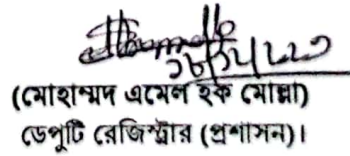 (মোহাম্মদ এমেল হক মোল্লা)
ডেপুটি রেজিস্ট্রার (প্রশাসন)।